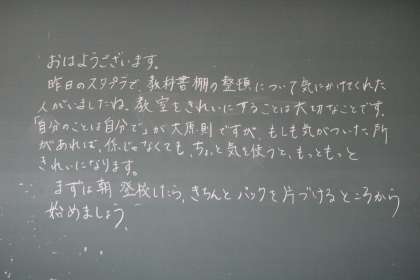 おはようございます。
昨日のスタプラで、教科書棚の整頓について気にかけてくれた
人がいましたね。教室をきれいにすることは大切なことです。
「自分のことは自分で」が大原則ですが、もしも気がついた所
があれば、係じゃなくても、ちょっと気を使うと、もっともっと
きれいになります。
まずは朝 登校したら、きちんとバックを片づけるところから
始めましょう。